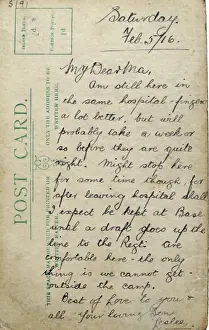 5191
Saturday
Feb. 5/16.
My Dear Ma,
Am still here in
the same hospital - fingers
a lot better, but will
probably take a week or
so before they are quite
right. Might stop here
for some time though, for
after leaving hospital shall
I expect be kept at Base
until a draft goes up the
line to the Regt: Are
comfortable here - the only
thing is we cannot get
outside the camp.
Best of love to you &
all - Your loving Son
Leslie.
POST CARD.
THE ADDRESS TO BE
WRITTEN HERE.